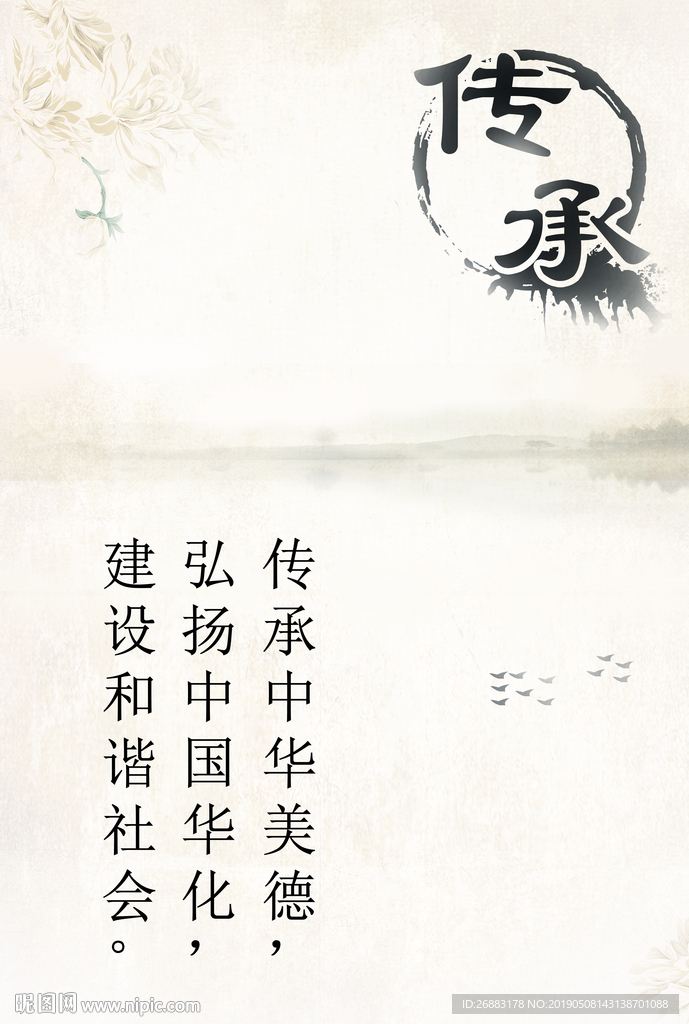 传承
传承中华美德，
弘扬中国华化，
建设和谐社会。
昵图网 www.nipic.com
ID:26883178 NO:20190508143138701088